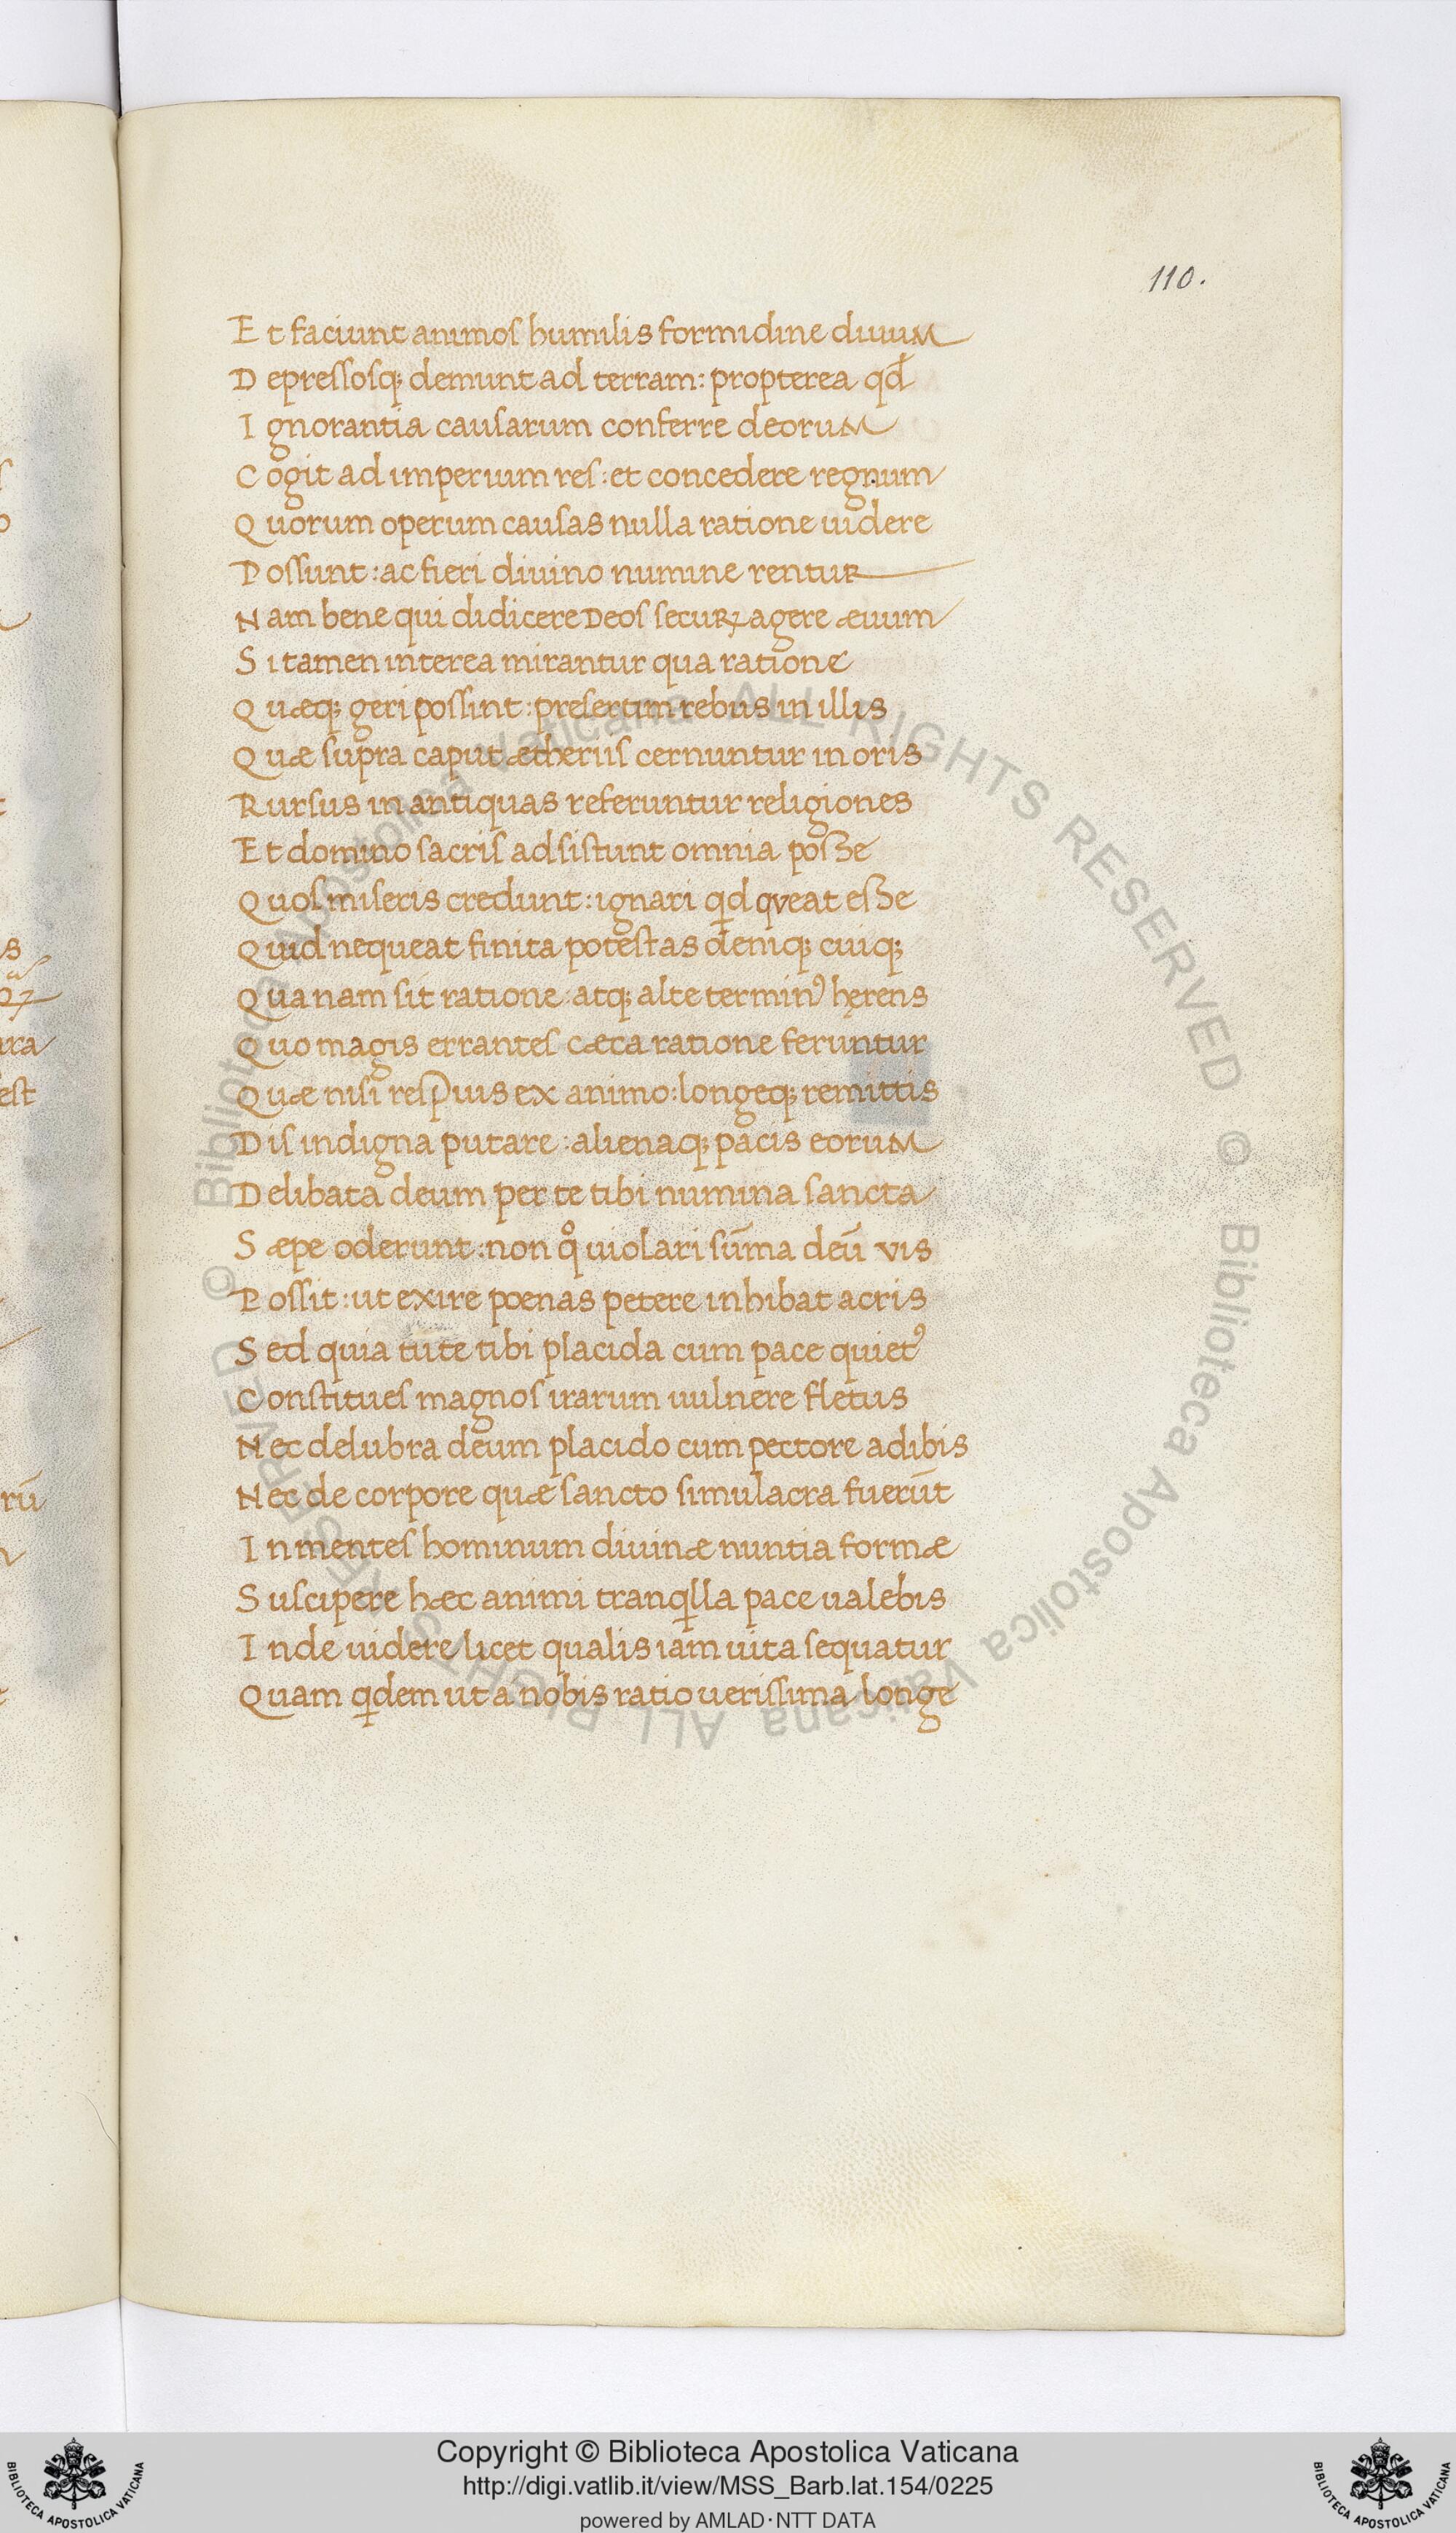 110.
Et faciunt animos humilis formidine diuum
Depressosq; demunt ad terram: propterea qđ
Ignorantia causarum conferre deorum
Cogit ad imperium res: et concedere regnum
Quorum operum causas nulla ratione uidere
Possunt: ac fieri diuino numine rentur
Nam bene qui didicere Deos securꝝ agere æuum
Si tamen interea mirantur qua ratione
Quæq; geri possint: presertim rebus in illis
Quæ supra caput ætheriis cernuntur in oris
Rursus in antiquas referuntur religiones
Et domino sacris adsistunt omnia posse
Quos miseris credunt: ignari qd queat esse
Quid nequeat finita potestas deniq; cuiq;
Quanam sit ratione: atq; alte terminꝰ hęrens
Quo magis errantes cæca ratione feruntur
Quæ nisi respuis ex animo: longeq; remittis
Dis indigna putare: alienaq; pacis eorum
Delibata deum per te tibi numina sancta
Sæpe oderunt: non qͦ uiolari sūma deū vis
Possit: ut exire poenas petere inhibat acris
Sed quia tute tibi placida cum pace quietꝰ
Constitues magnos irarum uulnere fletus
Nec delubra deum placido cum pectore adibis
Nec de corpore quæ sancto simulacra fuerūt
In mentes hominum diuinæ nuntia formæ
Suscipere hæc animi tranqlla pace ualebis
Inde uidere licet qualis iam uita sequatur
Quam qdem ut a nobis ratio uerissima longe
© Biblioteca Apostolica Vaticana ALL RIGHTS RESERVED © Biblioteca Apostolica Vaticana ALL RIGHTS RESERVED
Copyright © Biblioteca Apostolica Vaticana
http://digi.vatlib.it/view/MSS_Barb.lat.154/0225
powered by AMLAD·NTT DATA
BIBLIOTECA APOSTOLICA VATICANA
BIBLIOTECA APOSTOLICA VATICANA